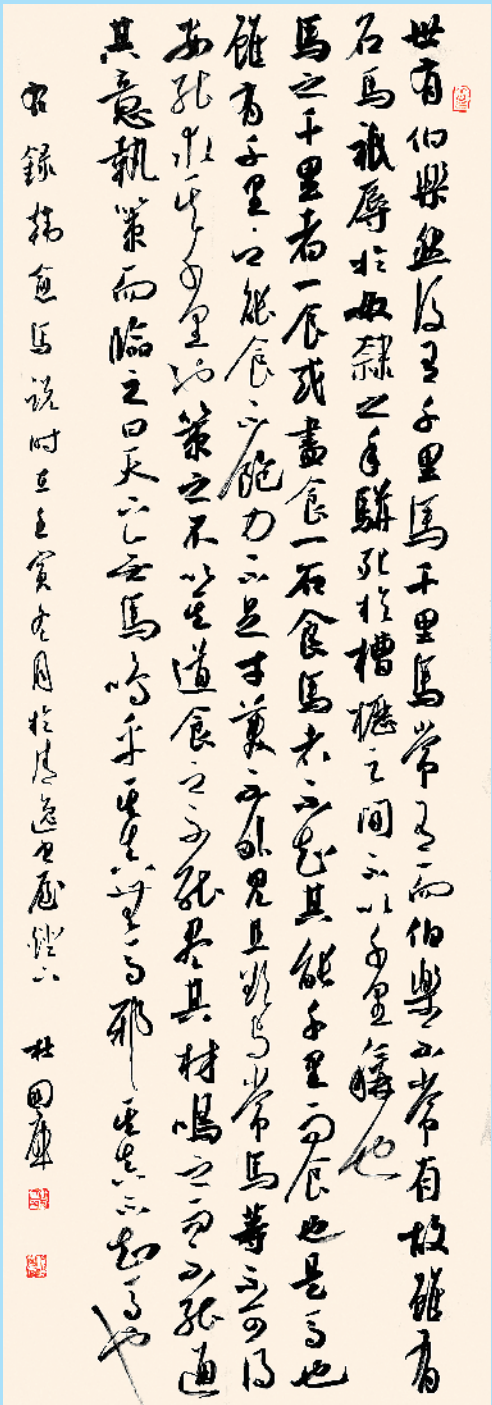 世有伯樂然後有千里馬千里馬常有而伯樂不常有故雖有
名馬祇辱於奴隸之手駢死於槽櫪之間不以千里稱也
馬之千里者一食或盡食一石食馬者不知其能千里而食也是馬也
雖有千里之能食不飽力不足才美不外見且欲與常馬等不可得
安能求其千里也策之不以其道食之不能盡其材鳴之而不能通
其意執策而臨之曰天下無馬嗚乎其真無馬邪其真不知馬也
錄韓愈馬說時在壬寅冬月於清逸書屋燈下 杜國庫